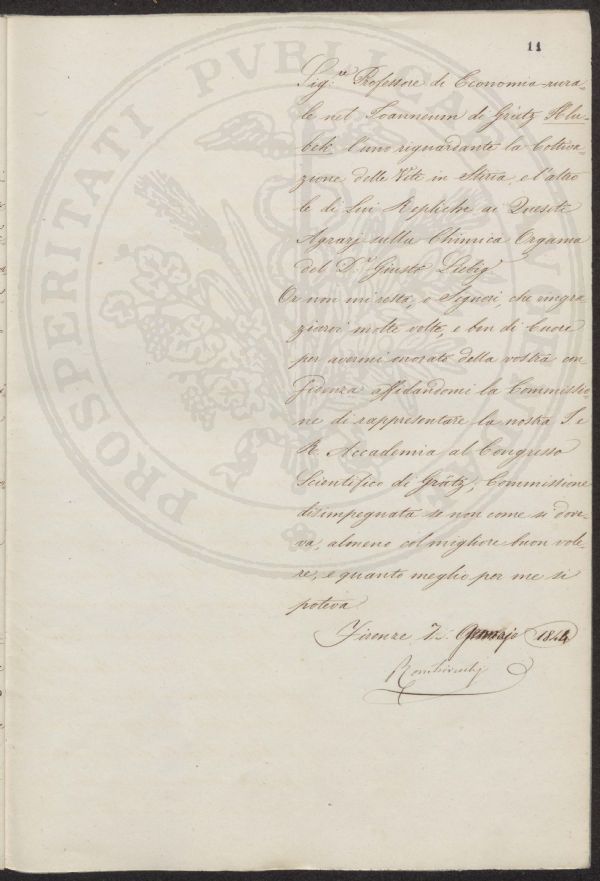 11
Sig.re Professore di Economia rura-
le nel Joanneum di Grätz Hlu-
bek l'uno riguardante la Coltiva-
zione delle Viti in Stiria, e l'altro
le di Lui Repliche ai Quesiti
Agrarj sulla Chimica Organica
del D.r Giusto Liebig
Or non mi resta, o Signori, che ringra-
ziarvi molte volte, e ben di Cuore
per avermi onorato della vostra con
fidenza affidandomi la Commissio
ne di rappresentare la nostra I. e
R. Accademia al Congresso
Scientifico di Grätz, Commissione
disimpegnata se non come si dove-
va, almeno col migliore buon vole-
re, e quanto meglio per me si
poteva
Firenze 7. Gennajo 1844
PROSPERITATI PVBLICAE